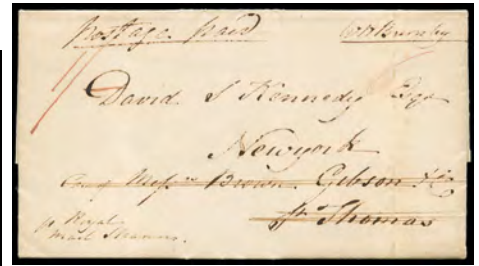 postage paid
David S Kennedy Esqr
Newyork
Care Messrs Brown Gibson & Co
St Thomas
pr Royal
Mail Steamer.